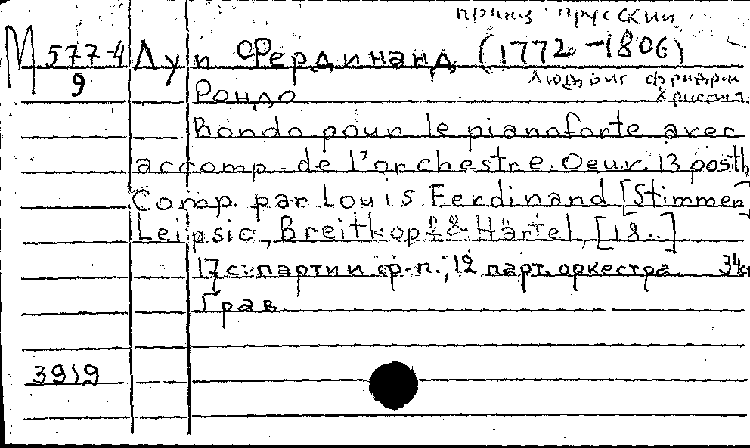 принц прусский
М 577-4 Луи Фердинанд (1772-1806)
9
Людвиг Фридрих
Христиан
Рондо
Rondo pour le pianoforte avec
accomp. de l'orchestre. Oeuv. 13 posth.
Comp. par Louis Ferdinand [Stimmen]
Leipsic, Breitkopf & Härtel, [18..]
17 с. партии ф-п., 12 парт. оркестра
Грав.
3919